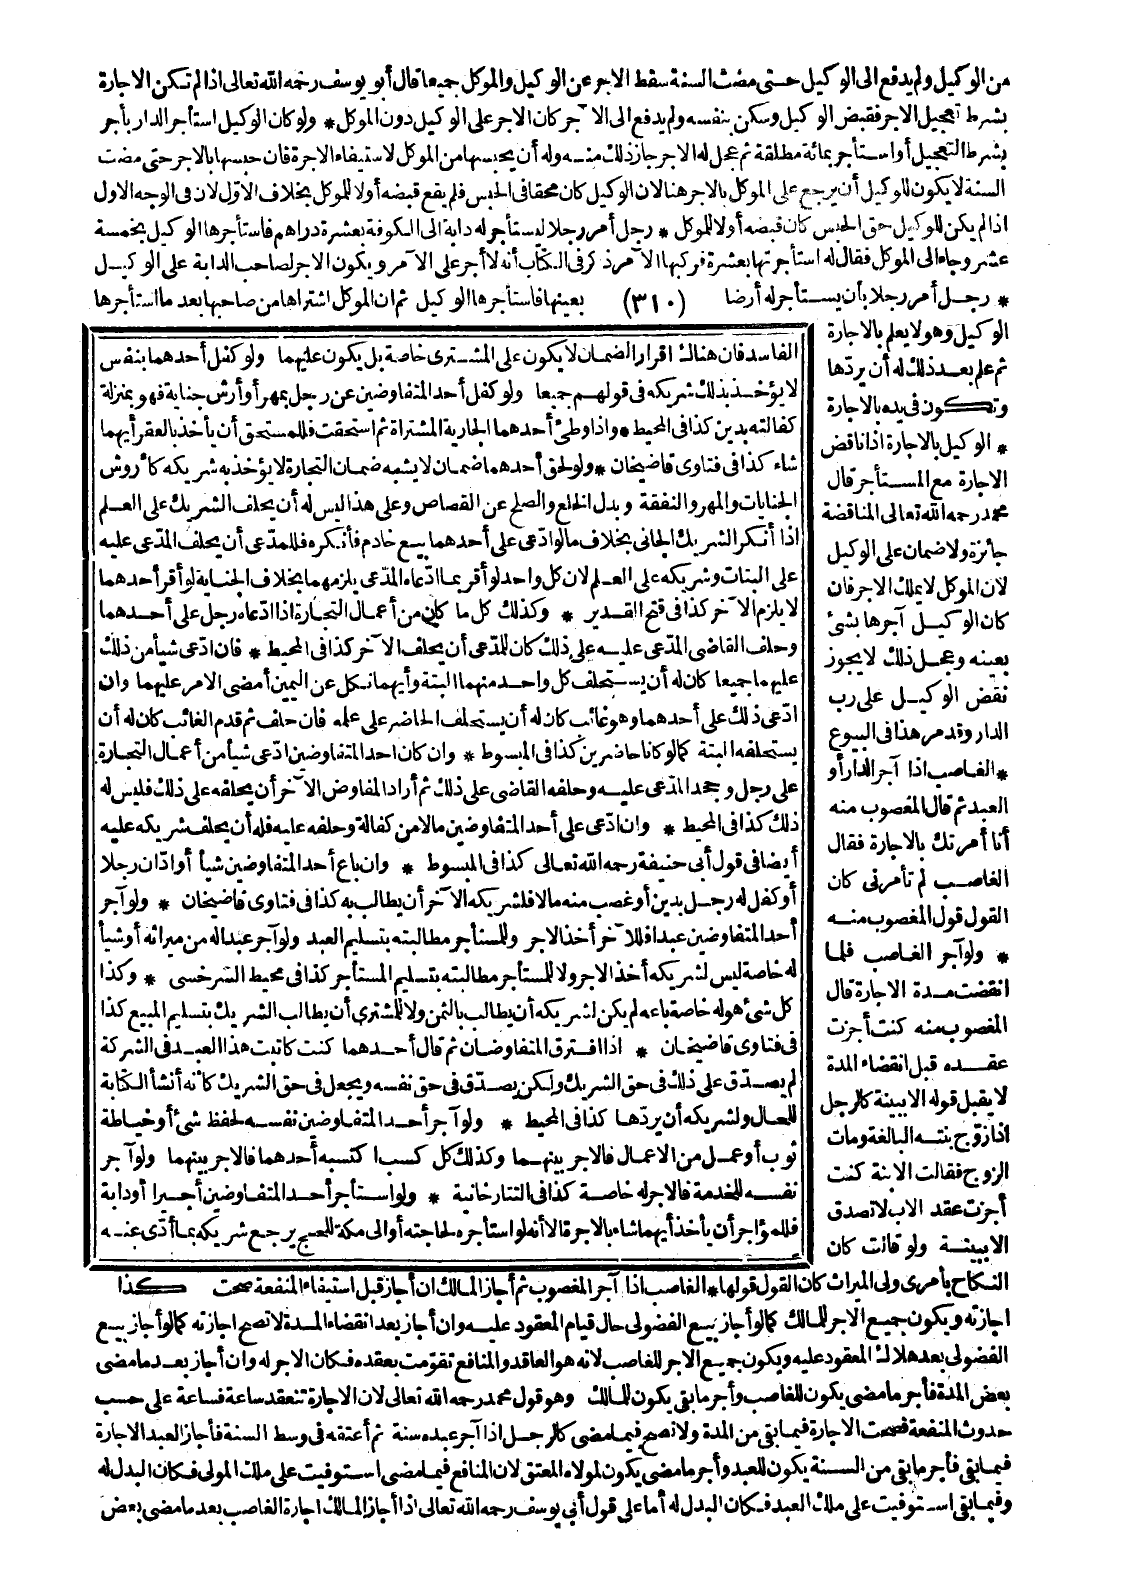 من الوكيل ولم يدفع الى الوكيل حتى مضت السنة سقط الاجر عن الوكيل والموكل جميعا قال أبو يوسف رحمه الله تعالى اذا لم تكن الاجارة
بشرط تعجيل الاجر فقبض الوكيل وسكن بنفسه ولم يدفع الى الآجر كان الاجر على الوكيل دون الموكل * ولو كان الوكيل استأجر الدار بأجر
بشرط التعجيل أو استأجر بمائة مطلقة ثم عجل له الاجر جاز ذلك منه وله أن يحبسها من الموكل لاستيفاء الاجرة فان حبسها بالاجر حتى مضت
السنة لا يكون للوكيل أن يرجع على الموكل بالاجر هنا لان الوكيل كان محقا فى الحبس فلم يقع قبضه أولا للموكل بخلاف الاول لان فى الوجه الاول
اذا لم يكن للوكيل حق الحبس كان قبضه أولا للموكل * رجل أمر رجلا ليستأجر له دابة الى الكوفة بعشرة دراهم فاستأجرها الوكيل بخمسة
عشر وجاء الى الموكل فقال له استأجرتها بعشرة فركبها الآمر ذكر فى الكتاب أنه لا أجر على الآمر ويكون الاجر لصاحب الدابة على الوكيل
* رجل أمر رجلا بأن يستأجر له أرضا (٣١٠) بعينها فاستأجرها الوكيل ثم ان الموكل اشتراها من صاحبها بعد ما استأجرها
الوكيل وهو لا يعلم بالاجارة
ثم علم بعد ذلك له أن يردّها
وتكون فى يده بالاجارة
* الوكيل بالاجارة اذا ناقض
الاجارة مع المستأجر قال
محمد رحمه الله تعالى المناقضة
جائزة ولا ضمان على الوكيل
لان الموكل لا يملك الاجر فان
كان الوكيل آجرها بشئ
بعينه وعجل ذلك لا يجوز
نقض الوكيل على رب
الدار وقد مر هذا فى البيوع
* الغاصب اذا آجر الدار أو
العبد ثم قال المغصوب منه
أنا أمرتك بالاجارة فقال
الغاصب لم تأمرنى كان
القول قول المغصوب منه
* ولو آجر الغاصب فلما
انقضت مدة الاجارة قال
المغصوب منه كنت أجزت
عقده قبل انقضاء المدة
لا يقبل قوله الا ببينة كالرجل
اذا زوّج بنته البالغة ومات
الزوج فقالت الابنة كنت
أجزت عقد الاب لا تصدق
الا ببينة ولو قالت كان
الفاسد فان هناك اقرار الضمان لا يكون على المشترى خاصة بل يكون عليهما ولو كفل أحدهما بنفس
لا يؤخذ بذلك شريكه فى قولهم جميعا ولو كفل أحد المتفاوضين عن رجل بمهر أو أرش جناية فهو بمنزلة
كفالته بدين كذا فى المحيط * واذا وطئ أحدهما الجارية المشتراة ثم استحقت فللمستحق أن يأخذ بالعقر أيهما
شاء كذا فى فتاوى قاضيخان * ولو لحق أحدهما ضمان لا يشبه ضمان التجارة لا يؤخذ به شريكه كأروش
الجنايات والمهر والنفقة وبدل الخلع والصلح عن القصاص وعلى هذا ليس له أن يحلف الشريك على العلم
اذا أنكر الشريك الجانى بخلاف ما لو ادّعى على أحدهما بيع خادم فأنكره فللمدّعى أن يحلف المدّعى عليه
على البتات وشريكه على العلم لان كل واحد لو أقر بما ادّعاه المدّعى يلزمهما بخلاف الجناية لو أقر أحدهما
لا يلزم الآخر كذا فى فتح القدير * وكذلك كل ما كان من أعمال التجارة اذا ادّعاه رجل على أحدهما
وحلف القاضى المدّعى عليه على ذلك كان للمدّعى أن يحلف الآخر كذا فى المحيط * فان ادّعى شيأ من ذلك
عليهما جميعا كان له أن يستحلف كل واحد منهما البتة وأيهما نكل عن اليمين أمضى الامر عليهما وان
ادّعى ذلك على أحدهما وهو غائب كان له أن يستحلف الحاضر على علمه فان حلف ثم قدم الغائب كان له أن
يستحلفه البتة كما لو كانا حاضرين كذا فى المبسوط * وان كان احد المتفاوضين ادّعى شيأ من أعمال التجارة
على رجل وجحد المدّعى عليه وحلفه القاضى على ذلك ثم أراد المفاوض الآخر أن يحلفه على ذلك فليس له
ذلك كذا فى المحيط * وان ادّعى على أحد المتفاوضين مالا من كفالة وحلفه عليه فله أن يحلف شريكه عليه
أيضا فى قول أبى حنيفة رحمه الله تعالى كذا فى المبسوط * وان باع أحد المتفاوضين شيأ أو ادّان رجلا
أو كفل له رجل بدين أو غصب منه مالا فلشريكه الآخر أن يطالب به كذا فى فتاوى قاضيخان * ولو آجر
أحد المتفاوضين عبدا فللآخر أخذ الاجر وللمستأجر مطالبته بتسليم العبد ولو آجر عبدا له من ميراثه أو شيأ
له خاصة ليس لشريكه أخذ الاجر ولا للمستأجر مطالبته بتسليم المستأجر كذا فى محيط السرخسى * وكذا
كل شئ هو له خاصة باعه لم يكن لشريكه أن يطالب بالثمن ولا للمشترى أن يطالب الشريك بتسليم المبيع كذا
فى فتاوى قاضيخان * اذا افترق المتفاوضان ثم قال أحدهما كنت كاتبت هذا العبد فى الشركة
لم يصدّق على ذلك فى حق الشريك ولكن يصدّق فى حق نفسه ويجعل فى حق الشريك كأنه أنشأ الكتابة
للحال ولشريكه أن يردّها كذا فى المحيط * ولو آجر أحد المتفاوضين نفسه لحفظ شئ أو خياطة
ثوب أو عمل من الاعمال فالاجر بينهما وكذلك كل كسب اكتسبه أحدهما فالاجر بينهما ولو آجر
نفسه للخدمة فالاجر له خاصة كذا فى التتارخانية * ولو استأجر أحد المتفاوضين أجيرا أو دابة
فللمؤاجر أن يأخذ أيهما شاء بالاجرة الا أنه لو استأجره لحاجته أو الى مكة للحج يرجع شريكه بما أدّى عنه
كذا
النكاح بأمرى ولى الميراث كان القول قولها * الغاصب اذا آجر المغصوب ثم أجاز المالك ان أجاز قبل استيفاء المنفعة صحت
اجازته ويكون جميع الاجر للمالك كما لو أجاز بيع الفضولى حال قيام المعقود عليه وان أجاز بعد انقضاء المدة لا تصح اجازته كما لو أجاز بيع
الفضولى بعد هلاك المعقود عليه ويكون جميع الاجر للغاصب لانه هو العاقد والمنافع تقوّمت بعقده فكان الاجر له وان أجاز بعد ما مضى
بعض المدة فأجر ما مضى يكون للغاصب وأجر ما بقى يكون للمالك وهو قول محمد رحمه الله تعالى لان الاجارة تنعقد ساعة فساعة على حسب
حدوث المنفعة فصحت الاجارة فيما بقى من المدة ولا تصح فيما مضى كالرجل اذا آجر عبده سنة ثم أعتقه فى وسط السنة فأجاز العبد الاجارة
فيما بقى فأجر ما بقى من السنة يكون للعبد وأجر ما مضى يكون لمولاه المعتق لان المنافع فيما مضى استوفيت على ملك المولى فكان البدل له
وفيما بقى استوفيت على ملك العبد فكان البدل له أما على قول أبى يوسف رحمه الله تعالى اذا أجاز المالك اجارة الغاصب بعد ما مضى بعض